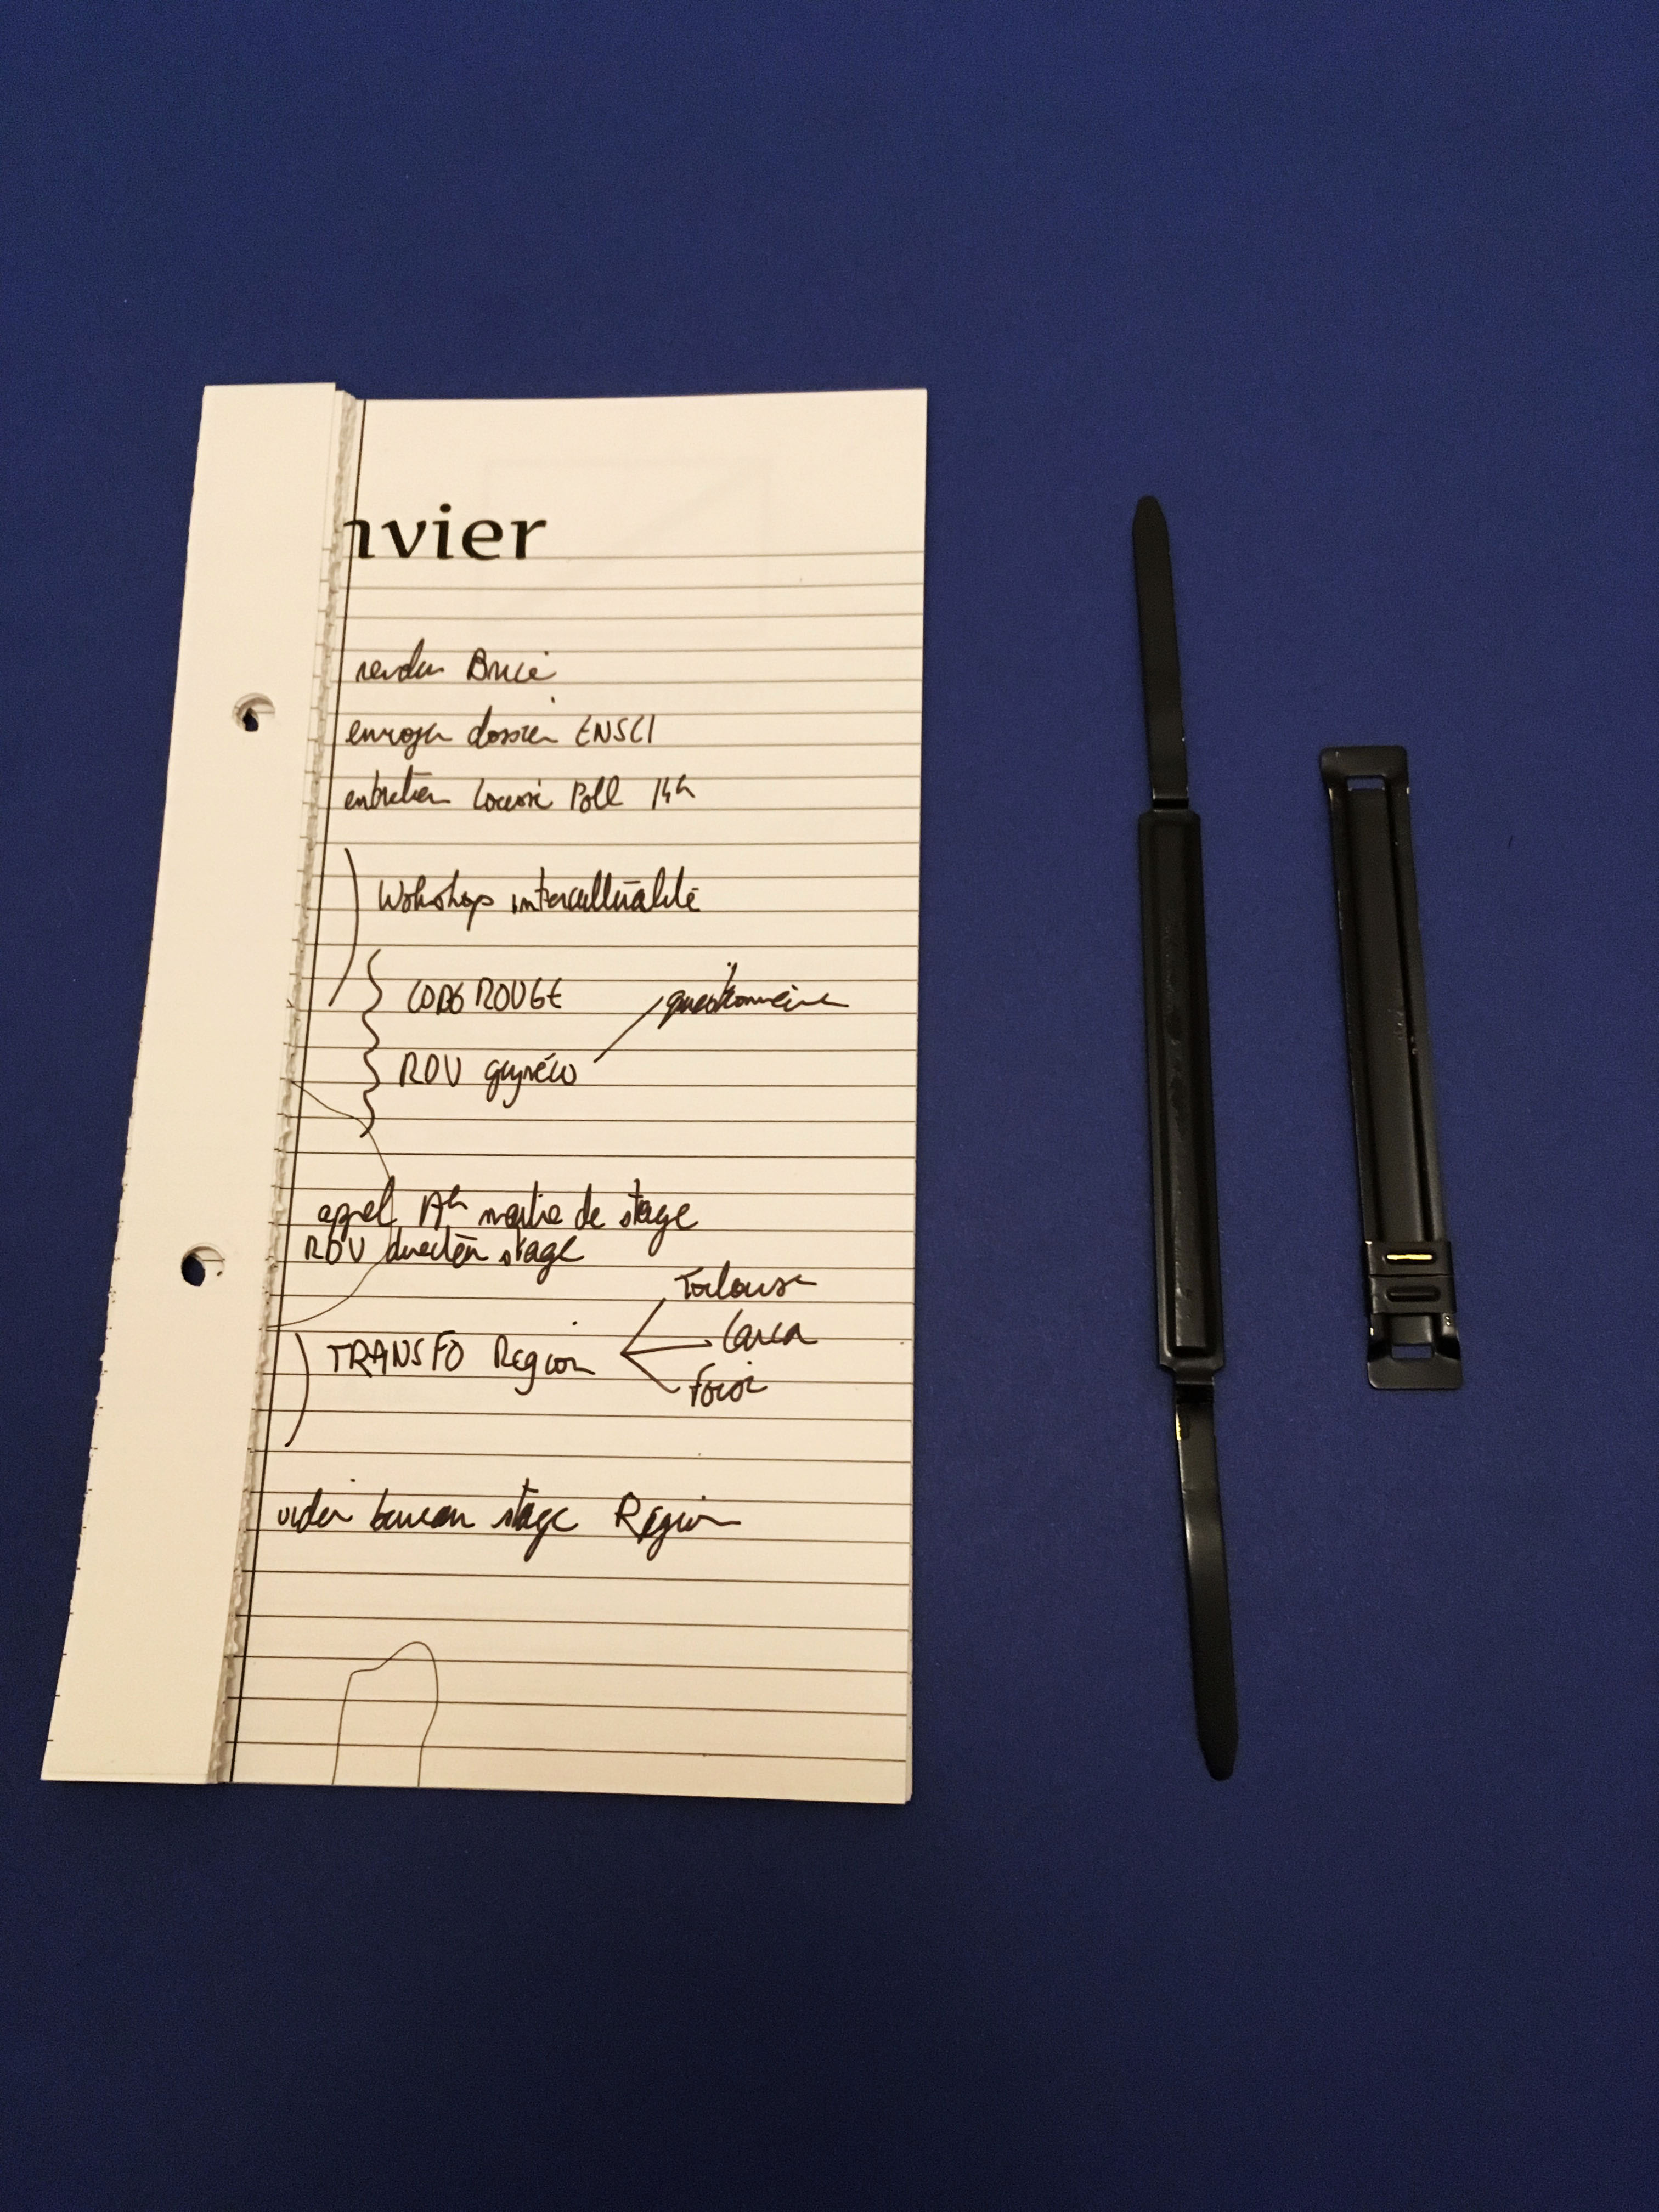 nvier
rendu Brice
envoyer dossier ENSCI
entretien Poll 14h
Wokshop interculturalité
ROUGE
questionnaire
RDV gynéco
appel maître de stage
RDV direction stage
Toulouse
TRANSFO Region
Carca
Foix
vider bureau stage Region